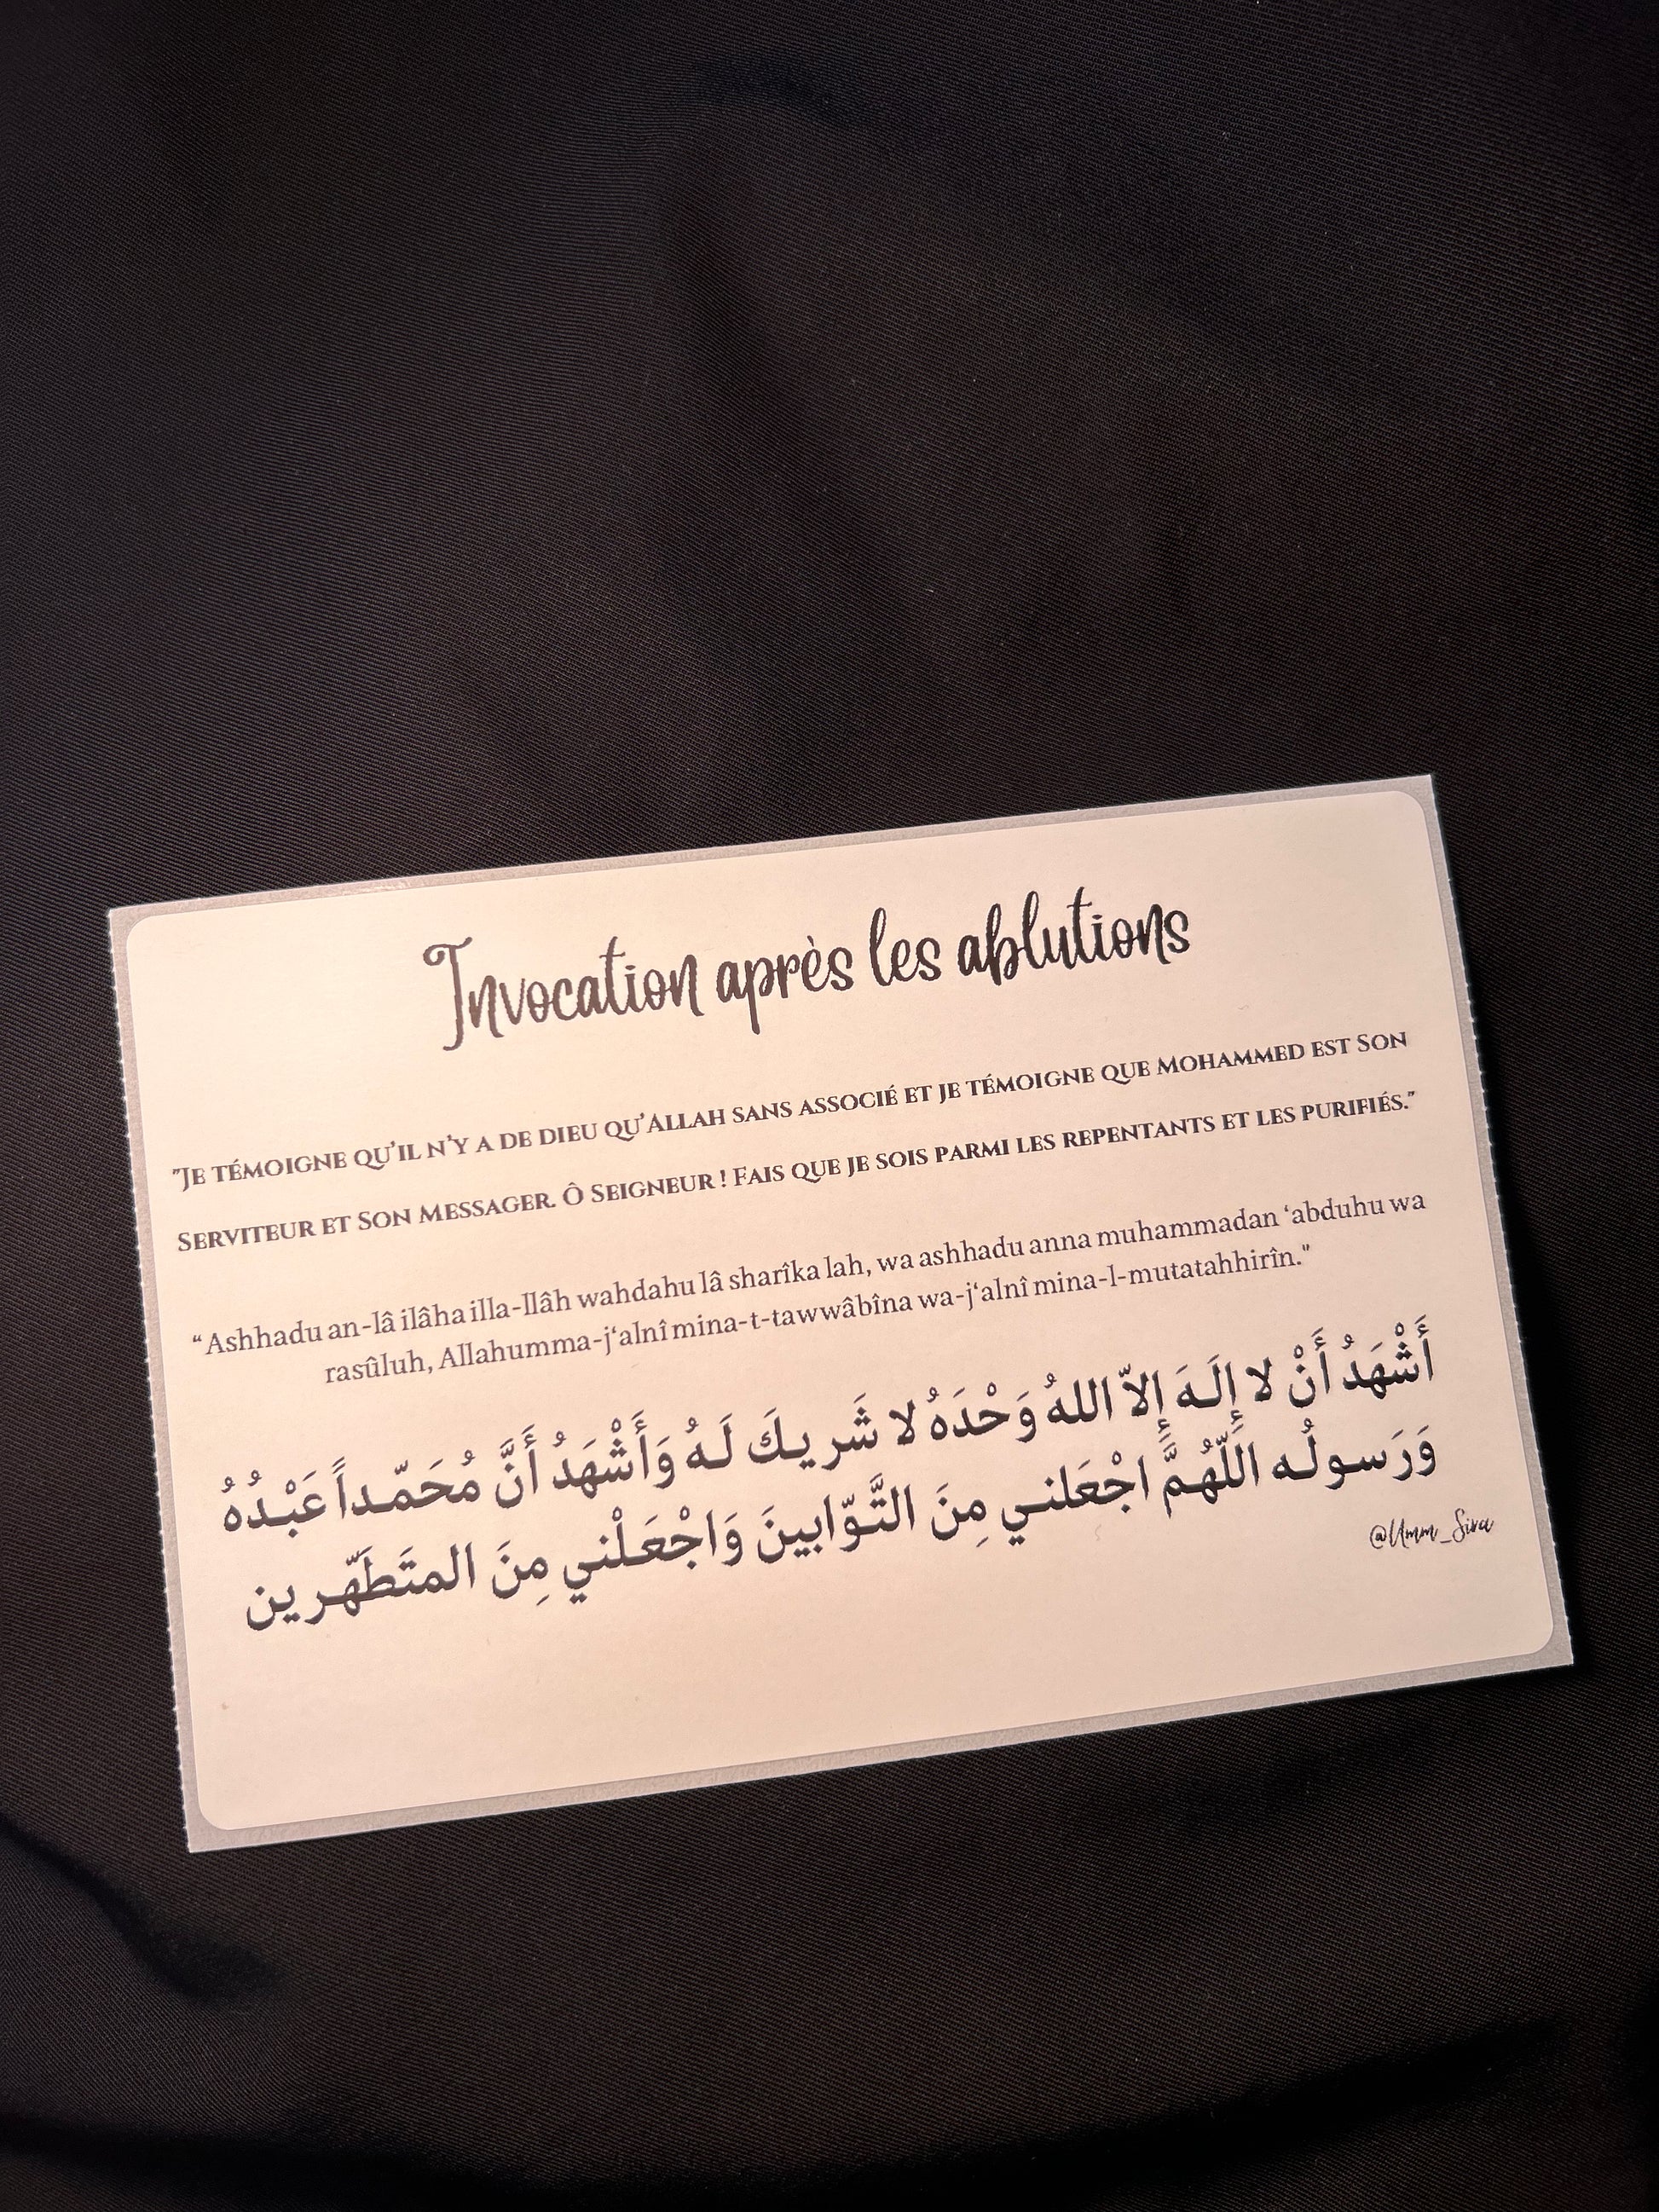 Invocation après les ablutions
"Je témoigne qu'il n'y a de dieu qu'Allah sans associé et je témoigne que Mohammed est Son
Serviteur et Son Messager. Ô Seigneur ! Fais que je sois parmi les repentants et les purifiés."
“Ashhadu an-lâ ilâha illa-llâh wahdahu lâ sharîka lah, wa ashhadu anna muhammadan ‘abduhu wa
rasûluh, Allahumma-j‘alnî mina-t-tawwâbîna wa-j‘alnî mina-l-mutatahhirîn."
أَشْهَدُ أَنْ لا إِلَـهَ إِلاّ اللهُ وَحْدَهُ لا شَريـكَ لَـهُ وَأَشْهَدُ أَنَّ مُحَمّـداً عَبْـدُهُ
وَرَسـولُـه اللّهُـمَّ اجْعَلنـي مِنَ التَّـوّابينَ وَاجْعَـلْني مِنَ المتَطَهّـرين
@Umm_Sira